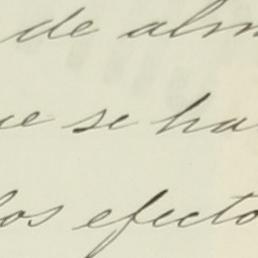 de alm
ue se ha
los efecto